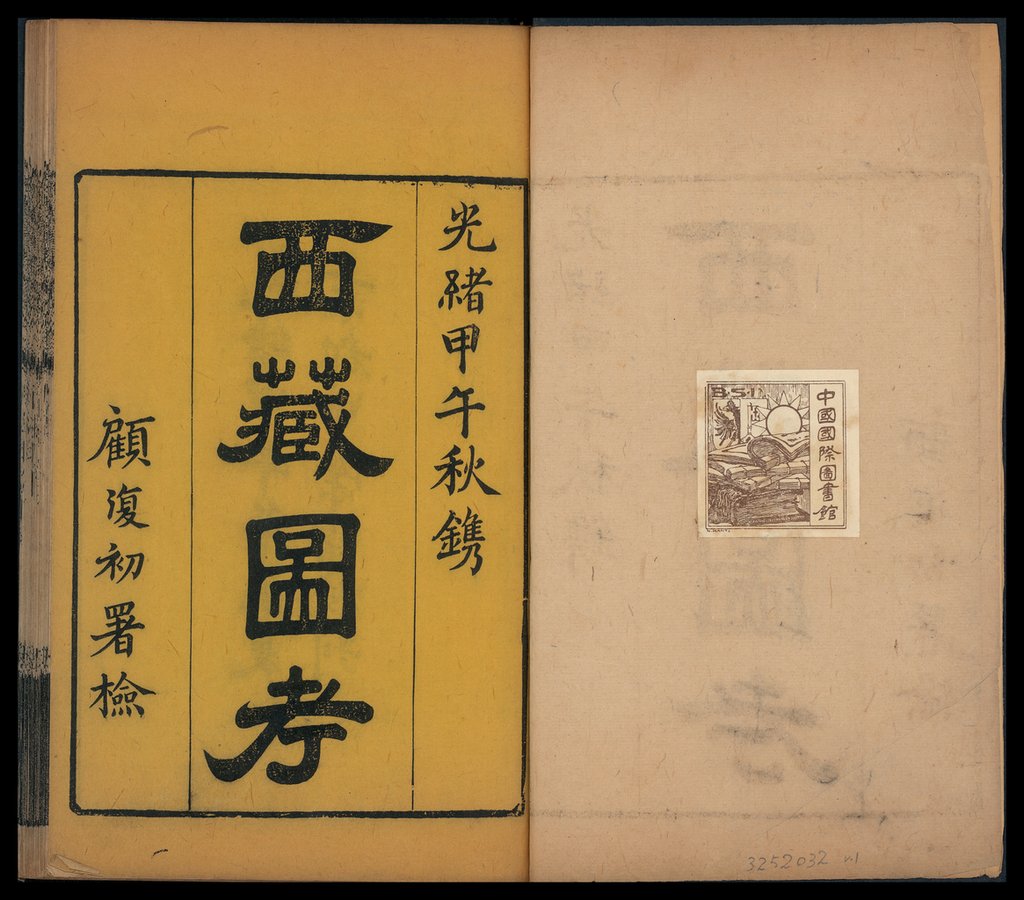 光緒甲午秋鐫
西藏圖考
顧復初署檢
B·S·I
中國國際圖書館
3252032 v.1